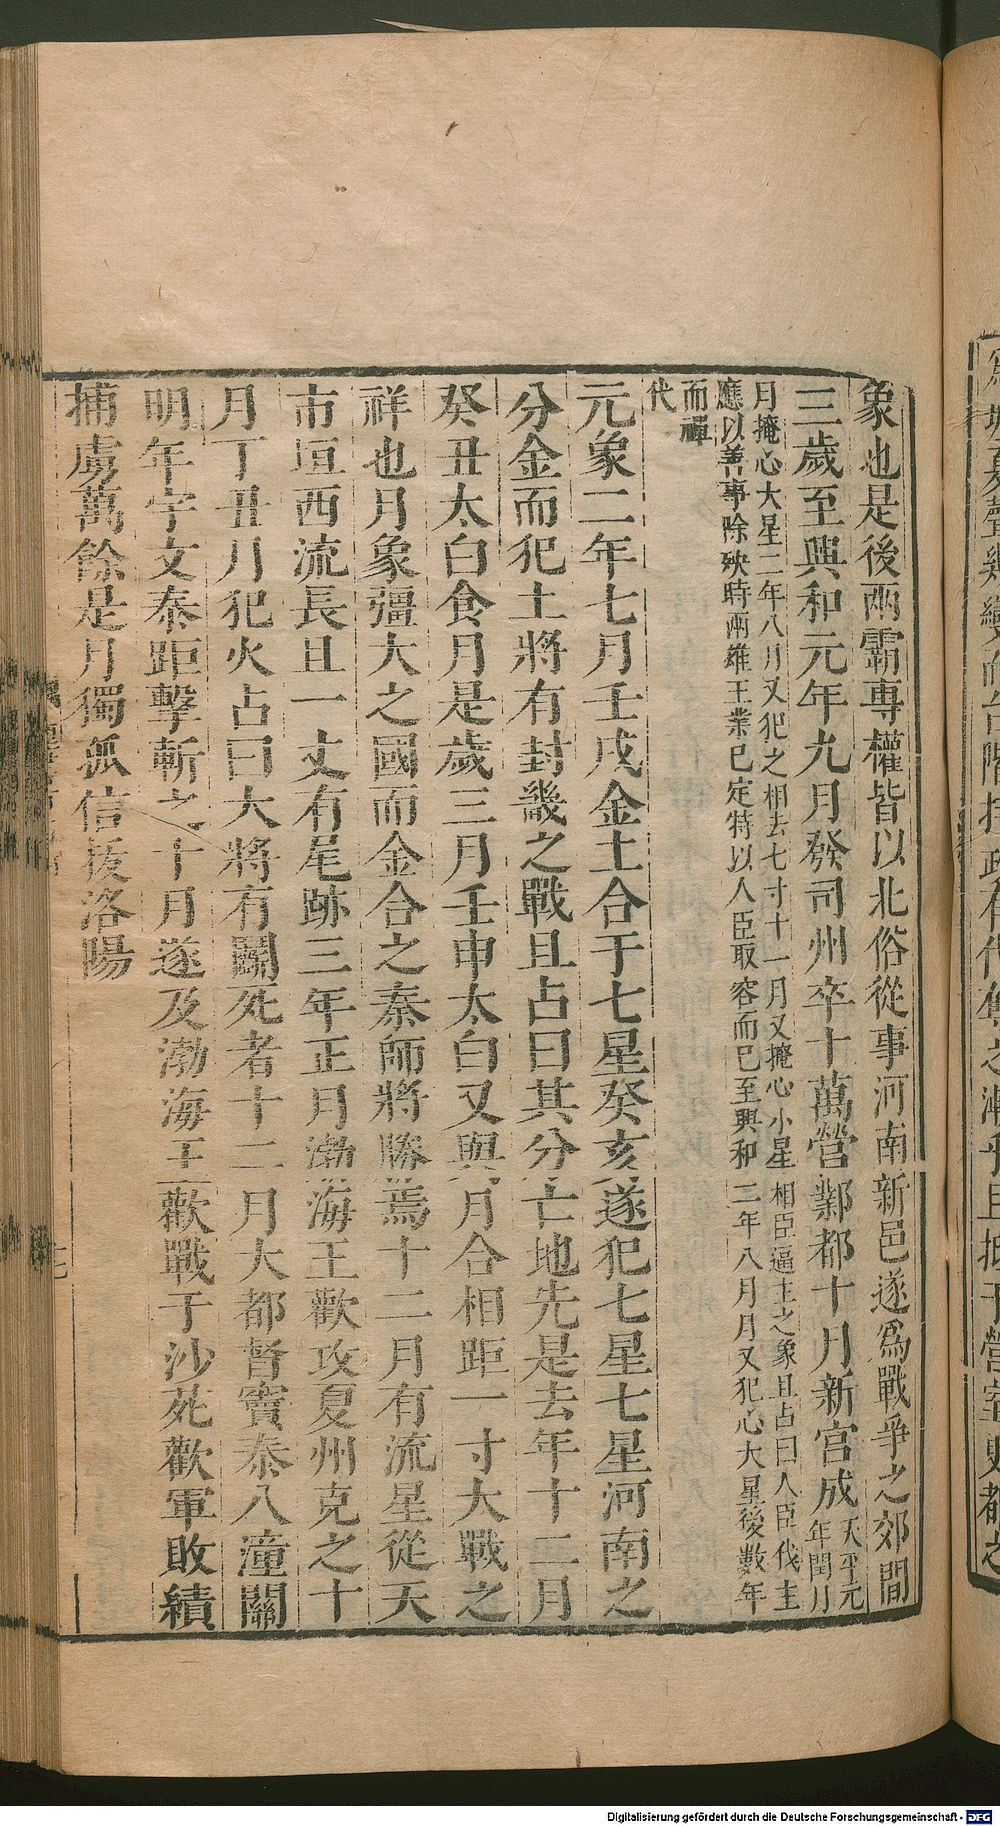 象也是後兩霸專權皆以北俗從事河南新邑遂爲戰爭之郊間
三歲至興和元年九月發司州卒十萬營鄴都十月新宮成天平元年閏月
月掩心大星二年八月又犯之相去七寸十一月又掩心小星相臣逼主之象且占曰人臣伐主
應以善事除殃時兩雄王業已定特以人臣取容而已至興和二年八月月又犯心大星後數年
而禪
代
元象二年七月壬戌金土合于七星癸亥遂犯七星七星河南之
分金而犯土將有封畿之戰且占曰其分亡地先是去年十二月
癸丑太白食月是歲三月壬申太白又與月合相距一寸大戰之
祥也月象彊大之國而金合之秦師將勝焉十二月有流星從天
市垣西流長且一丈有尾跡三年正月渤海王歡攻夏州克之十
月丁丑月犯火占曰大將有鬭死者十二月大都督竇泰入潼關
明年宇文泰距擊斬之十月遂及渤海王歡戰于沙苑歡軍敗績
捕虜萬餘是月獨孤信拔洛陽
Digitalisierung gefördert durch die Deutsche Forschungsgemeinschaft - DFG